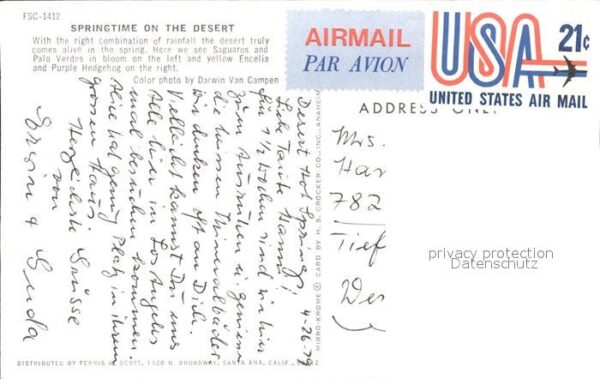 FSC-1412
SPRINGTIME ON THE DESERT
With the right combination of rainfall the desert truly
comes alive in the spring. Here we see Saguaros and
Palo Verdes in bloom on the left and yellow Encelia
and Purple Hedgehog on the right.
Color photo by Darwin Van Campen
Desert Hot Springs, 4-26-79
Liebe Tante Hanni!
Für 1 1/2 Wochen sind wir hier
zum Ausruhen u. geniessen
die heissen Mineralbäder.
Wir denken oft an Dich.
Vielleicht kannst Du uns
Alle hier in Los Angeles
mal besuchen kommen.
Alice hat genug Platz in ihrem
grossen Haus.
Herzlichste Grüsse
von
Erwin & Gerda
MIRRO-KROME ® CARD BY H. S. CROCKER CO., INC., ANAHEIM,
DISTRIBUTED BY FERRIS H. SCOTT, 1320 N. BROADWAY, SANTA ANA, CALIF.
AIRMAIL
PAR AVION
USA 21¢
UNITED STATES AIR MAIL
ADDRESS
Mrs.
Har
782
Tief
Wes
privacy protection
Datenschutz